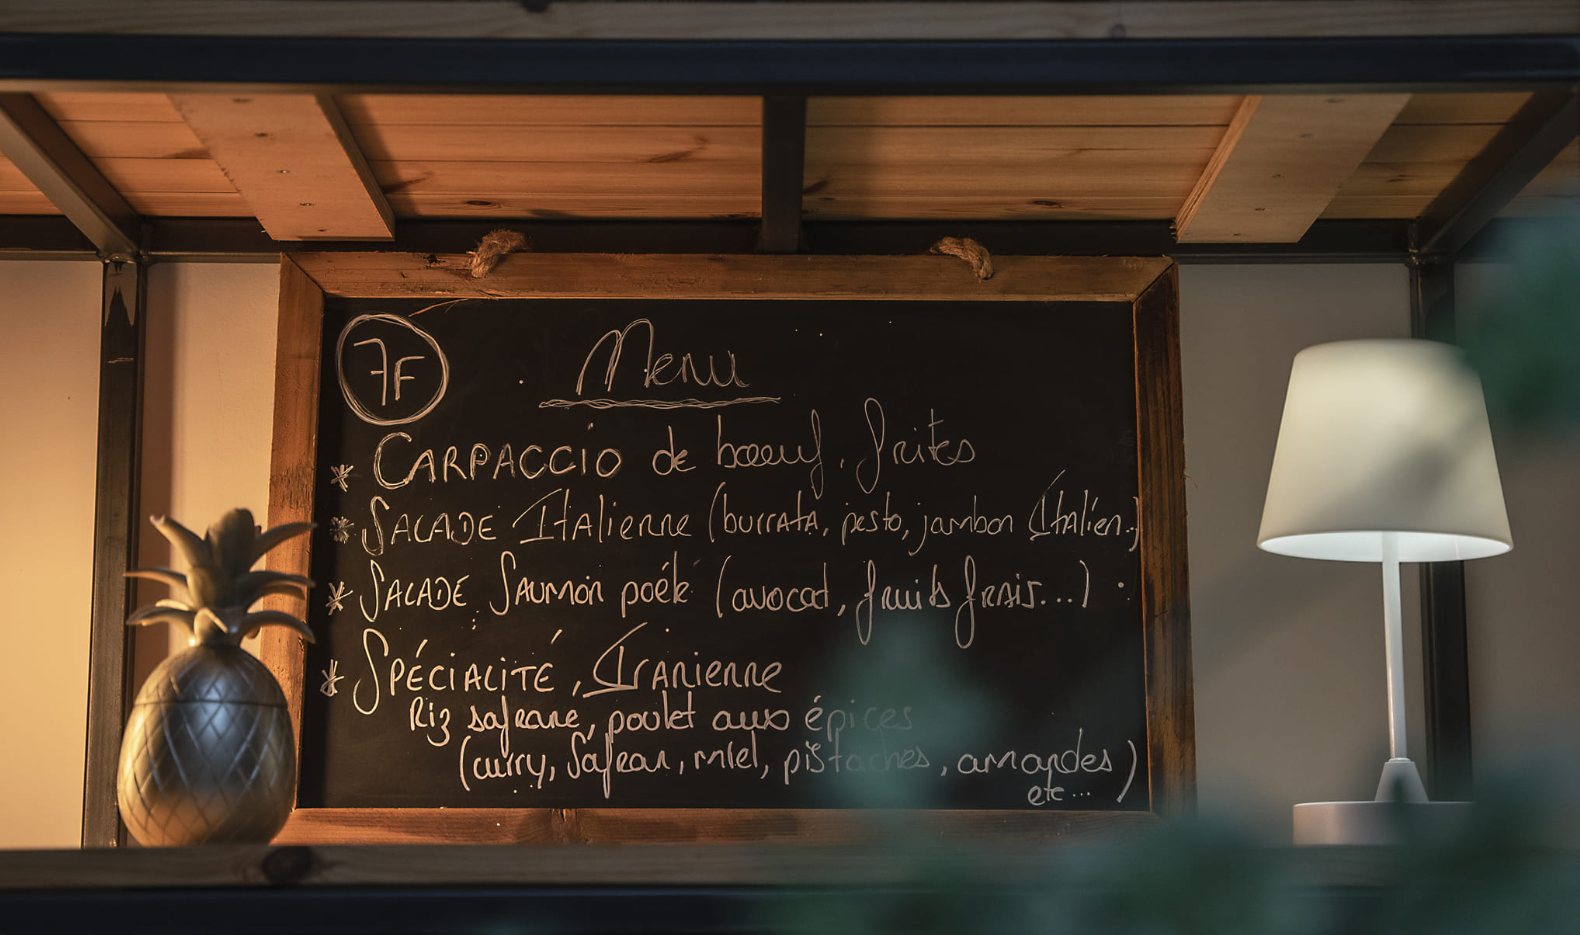 7F
Menu
* CARPACCIO de boeuf, frites
* SALADE Italienne (burrata, pesto, jambon Italien.)
* SALADE Saumon poélé (avocad, fruits frais...)
* SPÉCIALITÉ, Iranienne
Riz safrane, poulet aux épices
(curry, Safran, miel, pistaches, amandes)
etc...